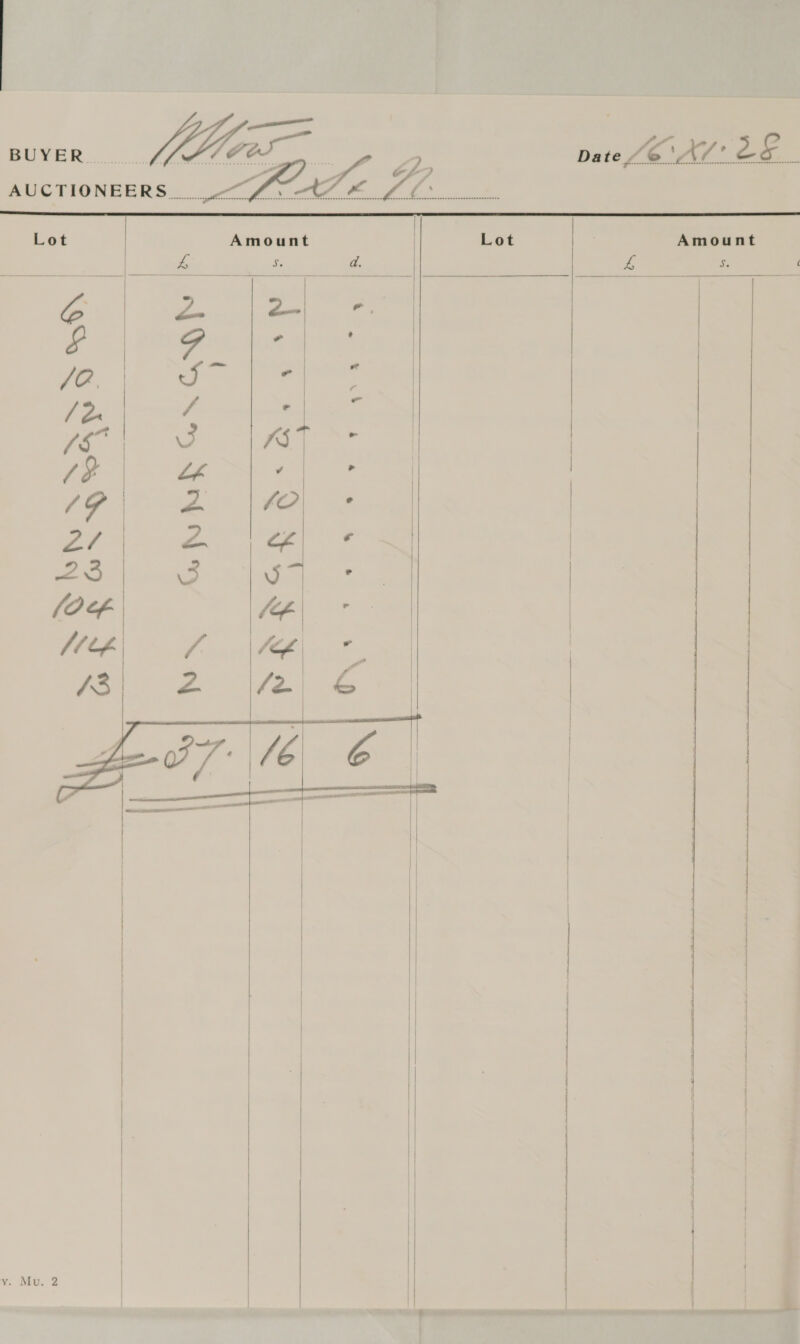 BUYER
Date 16.XI.28
AUCTIONEERS
Lot Amount Lot Amount
£ s. d. £ s.
6 2 2 -
8 9 - -
10. 5 - -
12 1 - -
15 3 15 -
18 4 - -
19 2 10 -
21 2 4 -
23 3 5 -
104 14 -
114 1 14 -
13 2 12 6
£ 37. 16 6
v. Mu. 2